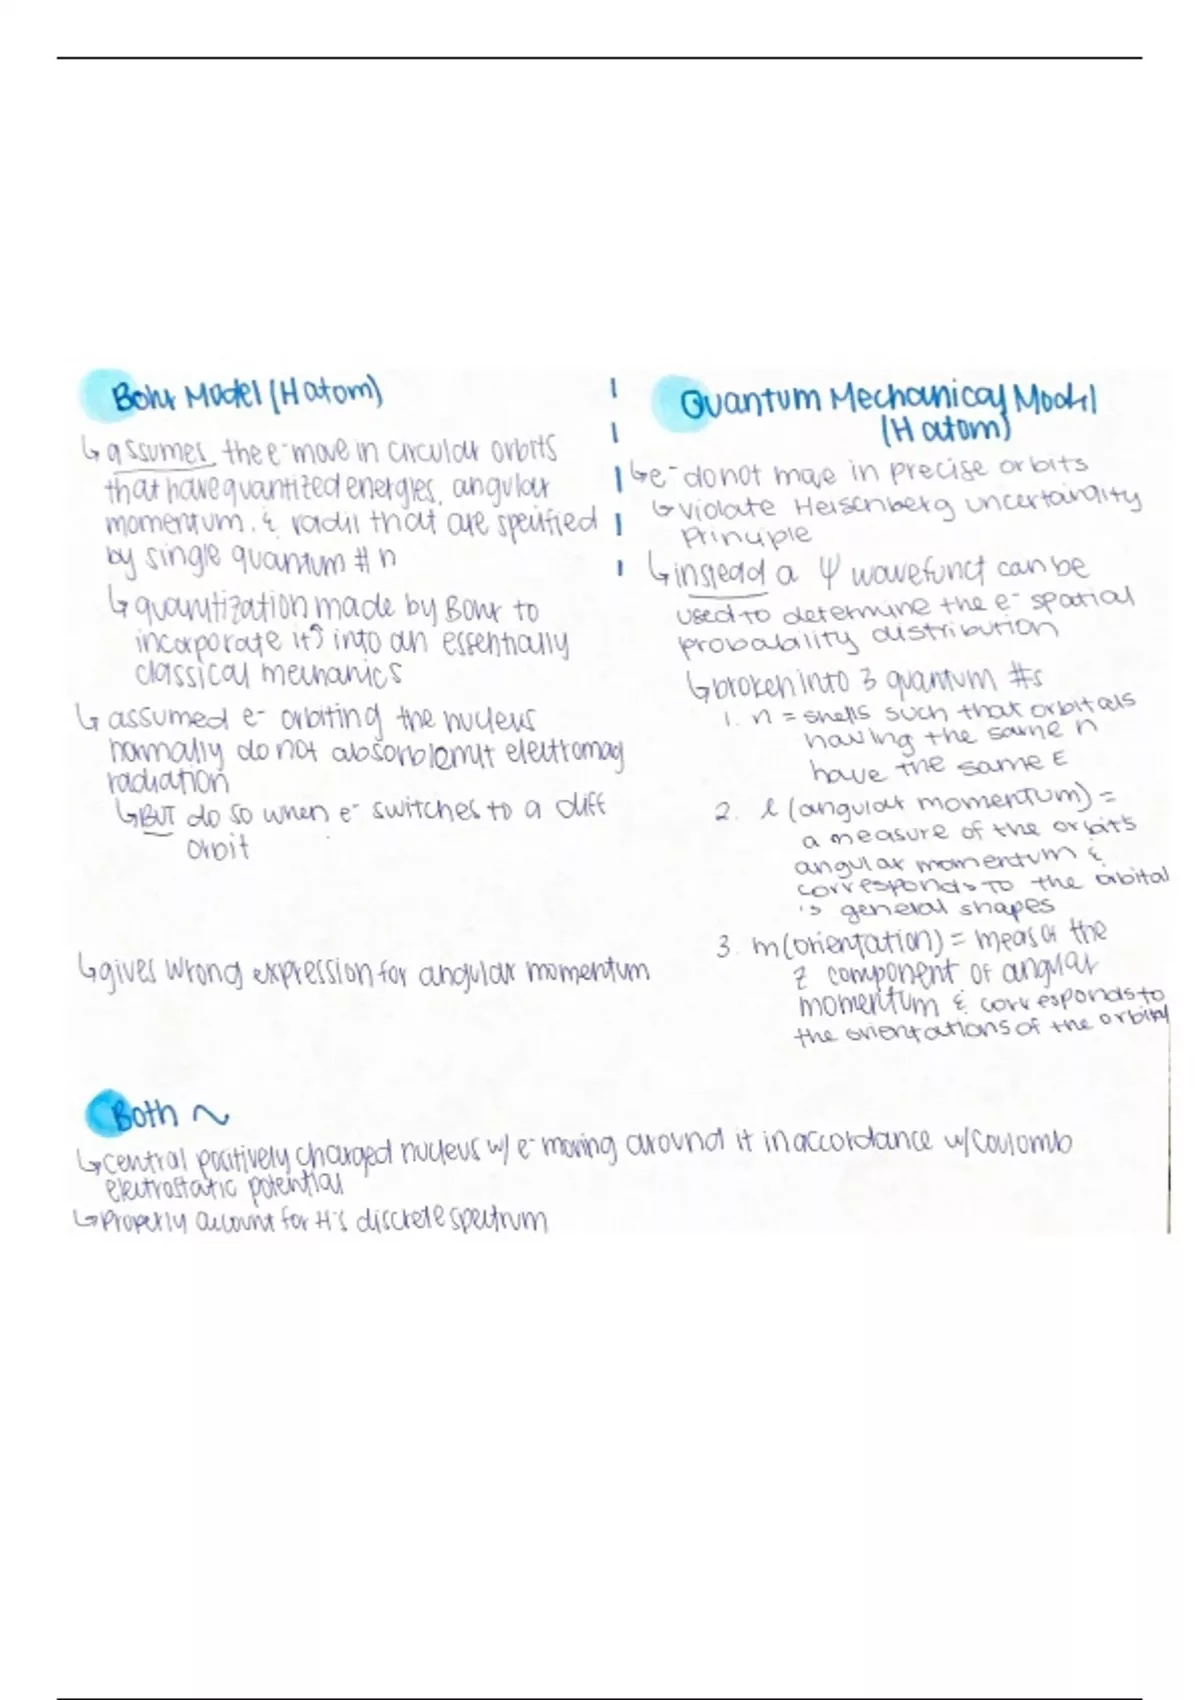 Bohr Model (H atom)
↳ assumes the e⁻ move in circular orbits
that have quantized energies, angular
momentum, & radii that are specified
by single quantum # n
↳ quantization made by Bohr to
incorporate it into an essentially
classical mechanics
↳ assumed e⁻ orbiting the nucleus
normally do not absorb/emit electromag
radiation
↳ BUT do so when e⁻ switches to a diff
orbit
↳ gives wrong expression for angular momentum
Quantum Mechanical Model
(H atom)
↳ e⁻ do not move in precise orbits
↳ violate Heisenberg uncertaingity
Principle
↳ instead a ψ wavefunct can be
used to determine the e⁻ spatial
probability distribution
↳ broken into 3 quantum #s
1. n = shells such that orbitals
having the same n
have the same E
2. l (angular momentum) =
a measure of the orbit's
angular momentum &
corresponds to the orbital
's general shapes
3. m (orientation) = meas of the
z component of angular
momentum & corresponds to
the orientations of the orbital
Both ~
↳ central positively charged nucleus w/ e⁻ moving around it in accordance w/ Coulomb
electrostatic potential
↳ Properly account for H's discrete spectrum